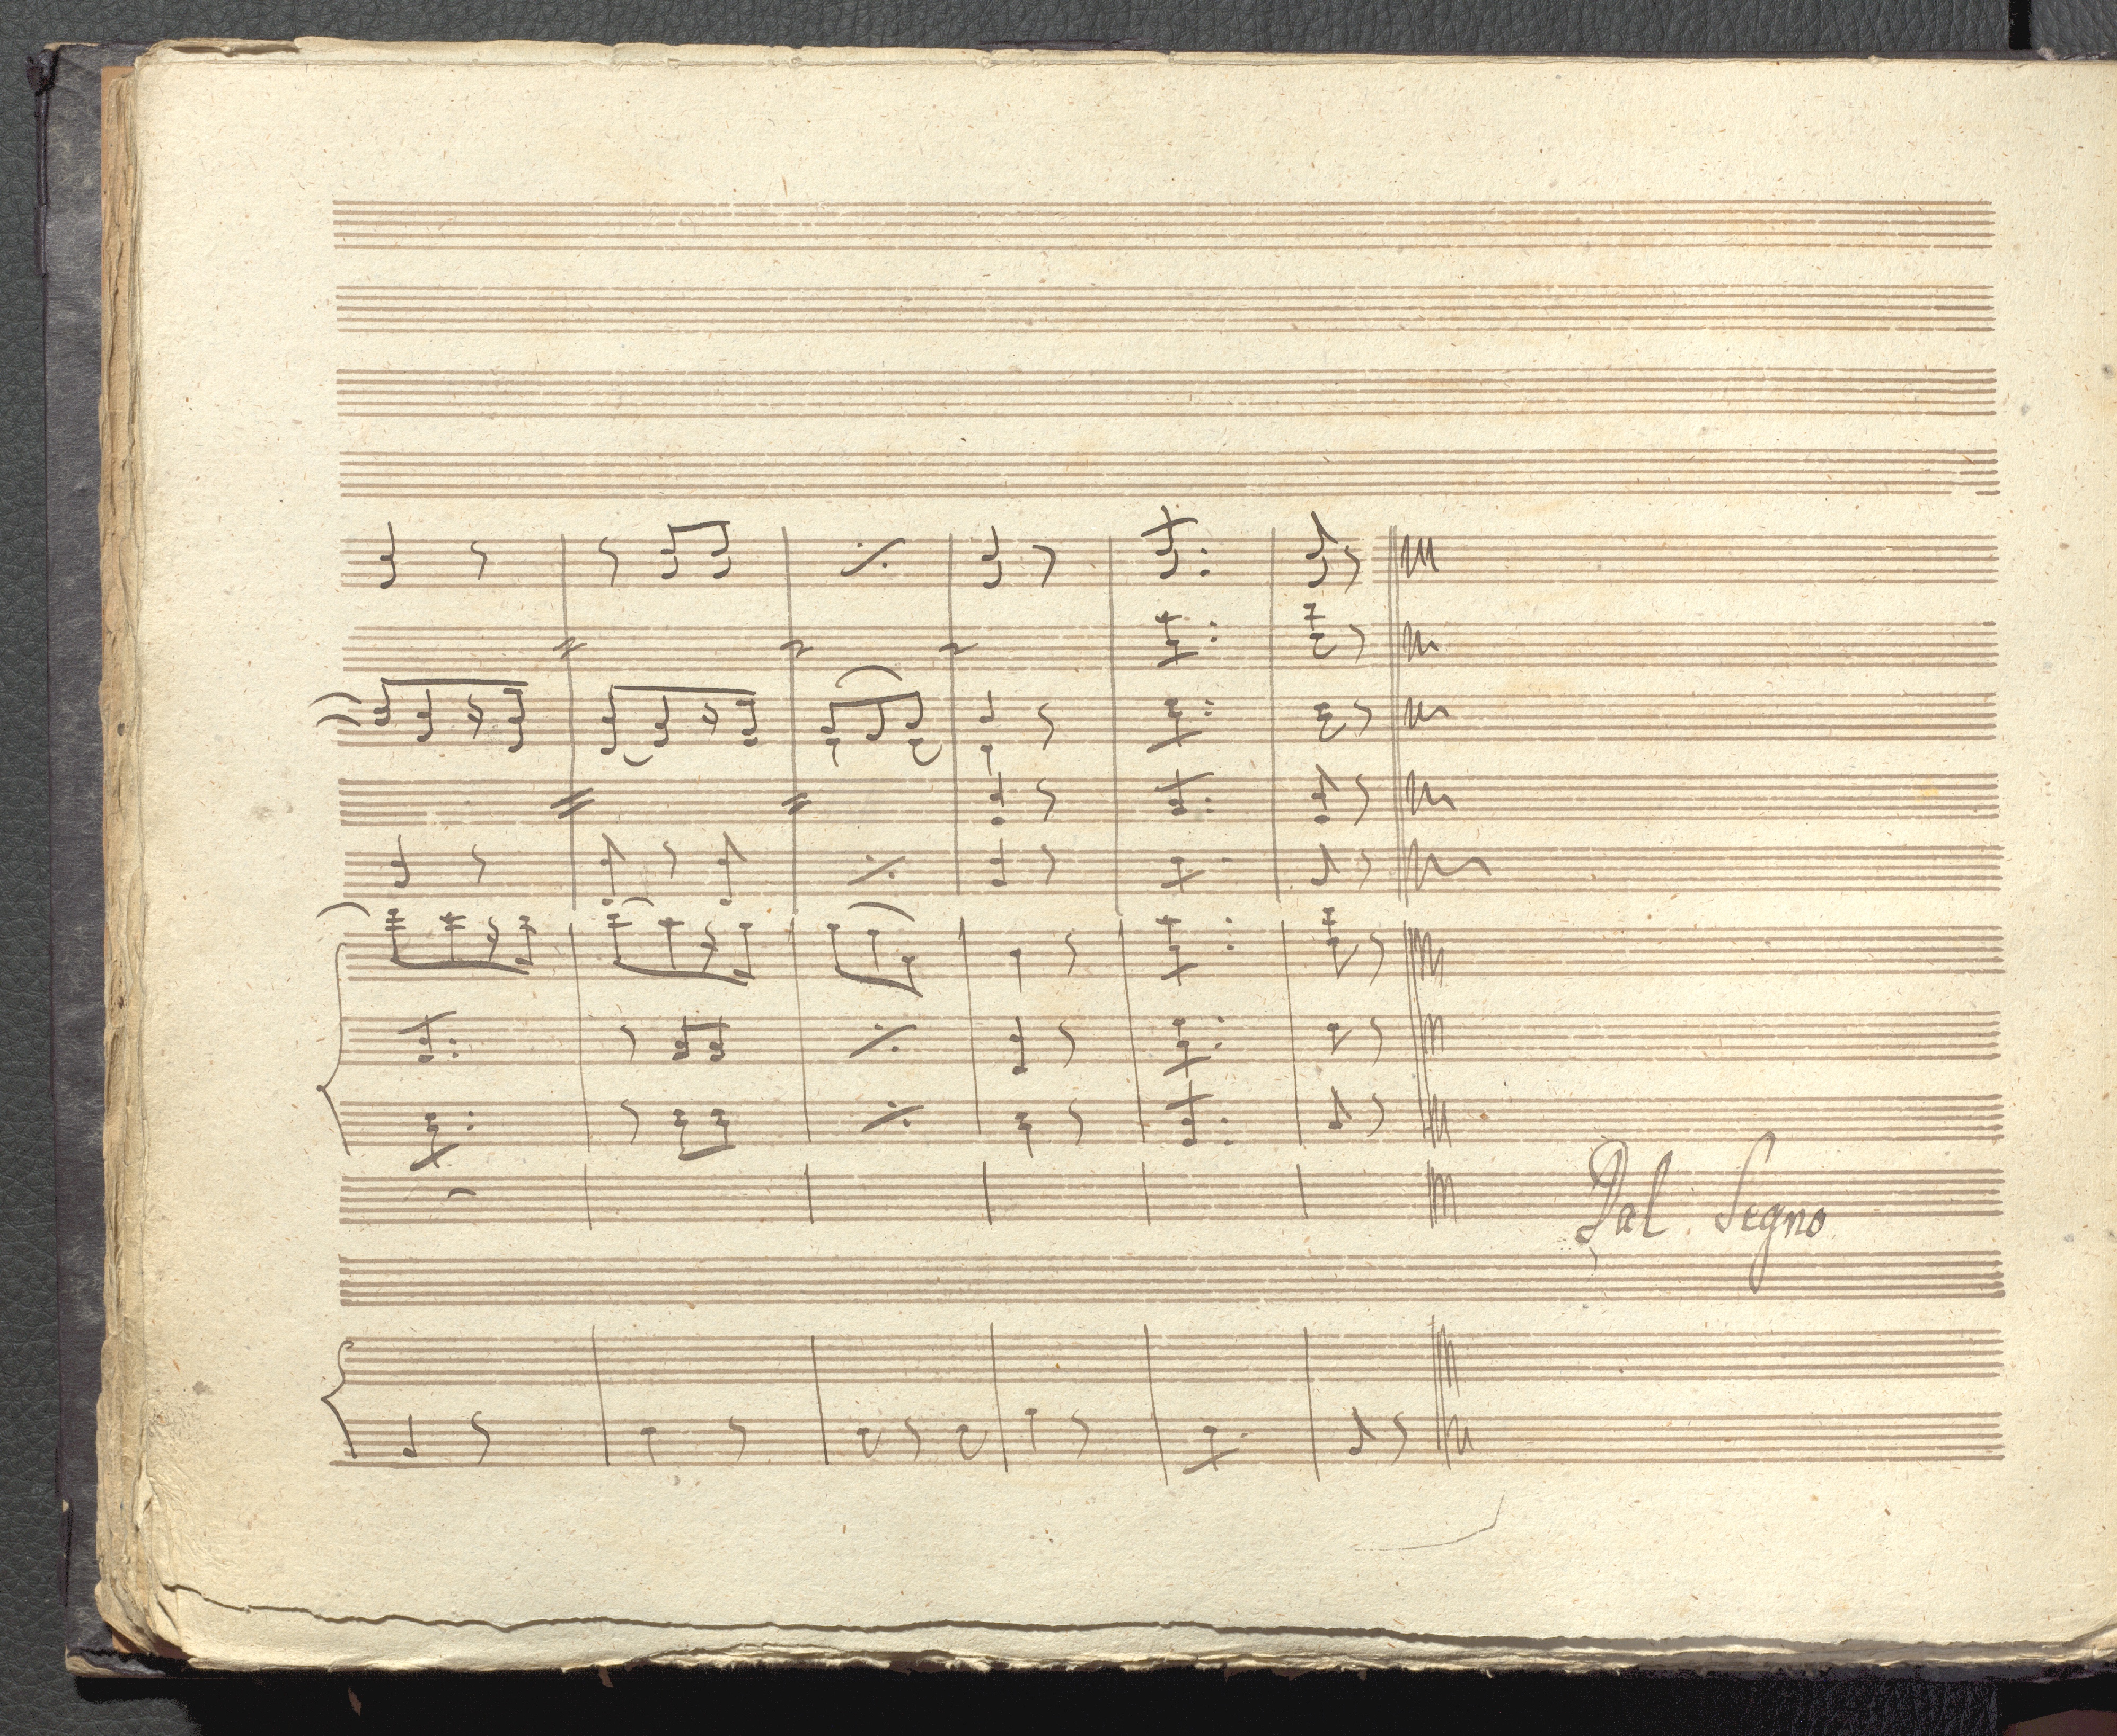 Dal Segno